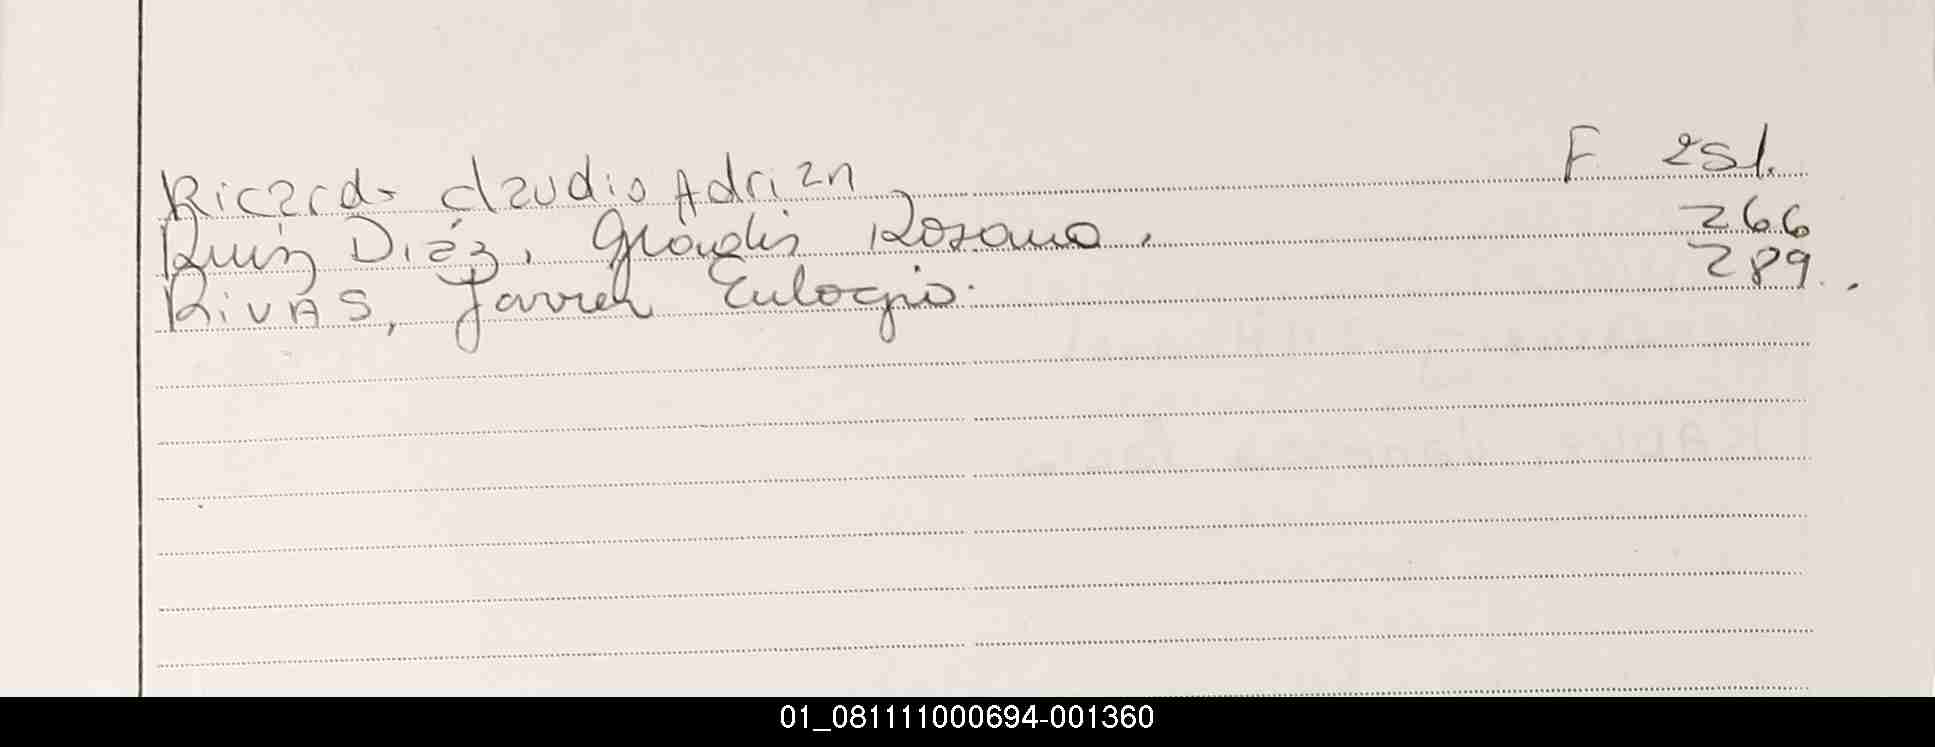 Ricardo Claudio Adrian F 251.
Ruiz Diéz, Gladis Rosana. 266
RIVAS, Javier Eulogio. 289.
01_081111000694-001360